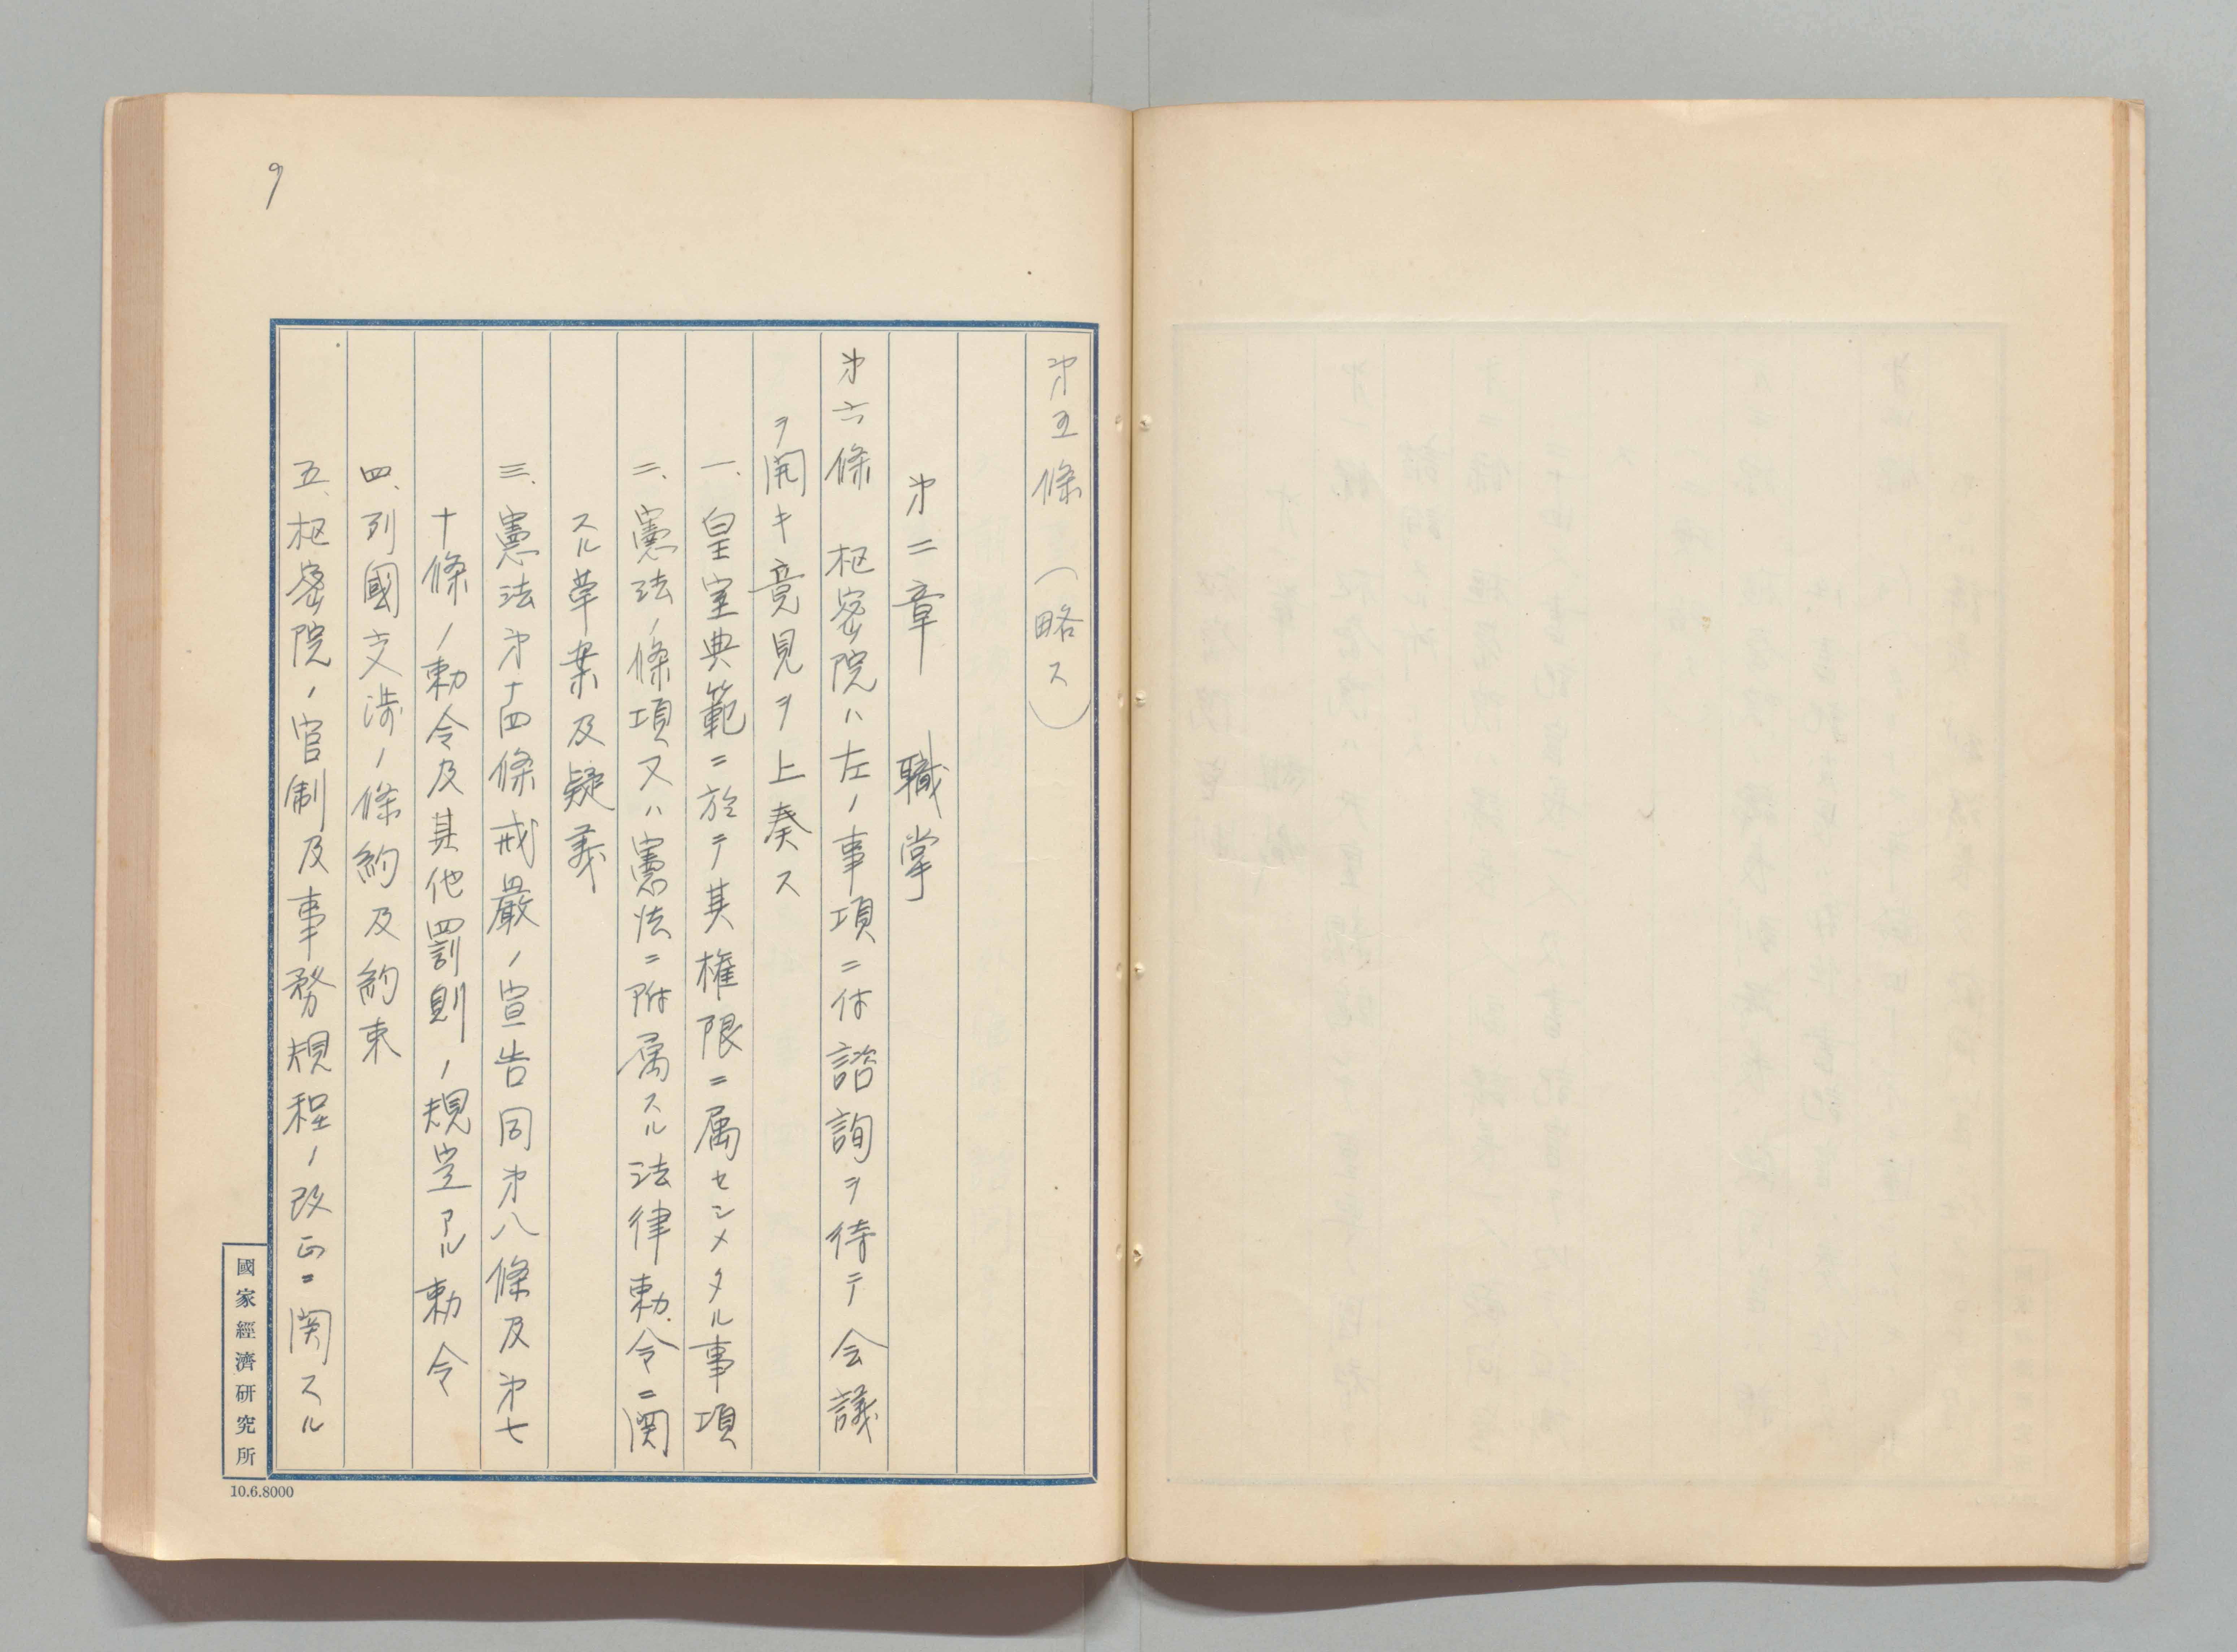 9
第五條（略ス）
第二章　職掌
第六條　枢密院ハ左ノ事項ニ付諮詢ヲ待テ会議
ヲ開キ意見ヲ上奏ス
一、皇室典範ニ於テ其権限ニ属セシメタル事項
二、憲法ノ條項又ハ憲法ニ附属スル法律勅令ニ関
スル草案及疑義
三、憲法第十四條戒厳ノ宣告同第八條及第七
十條ノ勅令及其他罰則ノ規定アル勅令
四、列國交渉ノ條約及約束
五、枢密院ノ官制及事務規程ノ改正ニ関スル
國家經濟研究所
10.6.8000